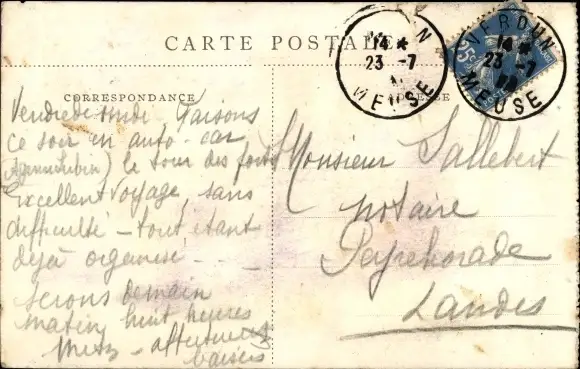 CARTE POSTALE
VERDUN
14 *
23 -7
MEUSE
VERDUN
14 *
23 -7
MEUSE
25c
CORRESPONDANCE
Vendredi midi Faisons
ce soir en auto-car
le tour des forts
Excellent voyage, sans
difficulté - tout étant
déjà organisé - - -
serons demain
matin, huit heures
Metz - affectueux
baisers
Monsieur Sallebert
notaire
Peyrehorade
Landes